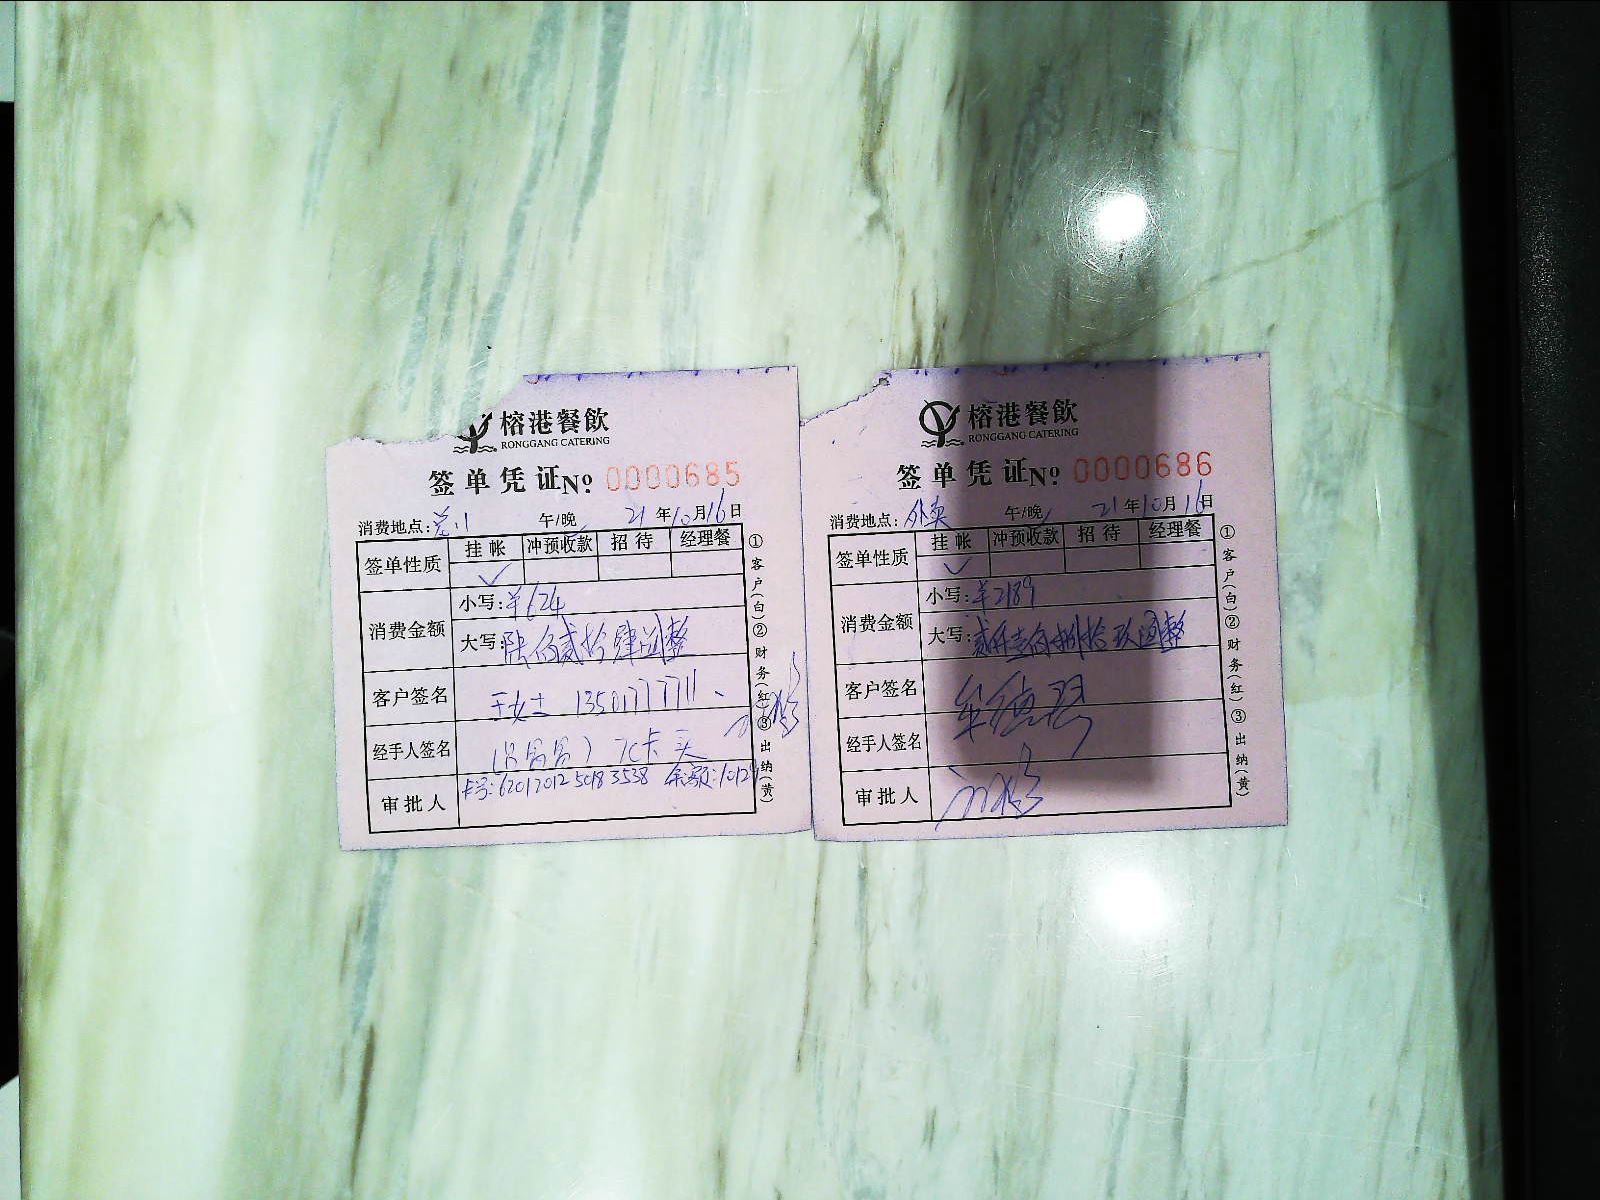 榕港餐飲
RONGGANG CATERING
签单凭证No. 0000685
消费地点: 午/晚 21年10月16日
签单性质 挂帐 冲预收款 招待 经理餐
✓
消费金额 小写:¥624
大写:陆佰贰拾肆圆整
客户签名 王女士 13501777711
经手人签名
卡号:6201701250183538 余额:
审批人
①客户(白)②财务(红)③出纳(黄)
榕港餐飲
RONGGANG CATERING
签单凭证No. 0000686
消费地点:外卖 午/晚 21年10月16日
签单性质 挂帐 冲预收款 招待 经理餐
✓
消费金额 小写:¥2189
大写:贰仟壹佰捌拾玖圆整
客户签名
经手人签名
审批人
①客户(白)②财务(红)③出纳(黄)